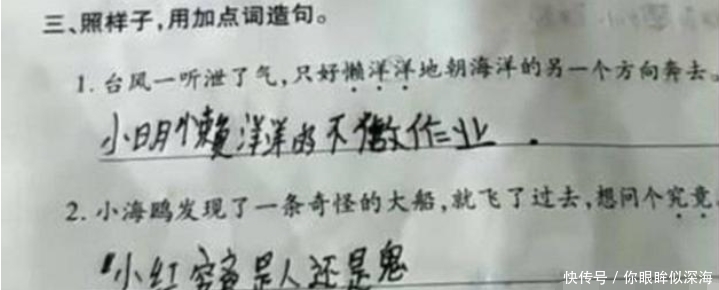 三、照样子,用加点词造句。
1. 台风一听泄了气,只好懒洋洋地朝海洋的另一个方向奔去。
小明懒洋洋的不做作业.
2. 小海鸥发现了一条奇怪的大船,就飞了过去,想问个究竟。
小红究竟是人还是鬼
快传号/你眼眸似深海